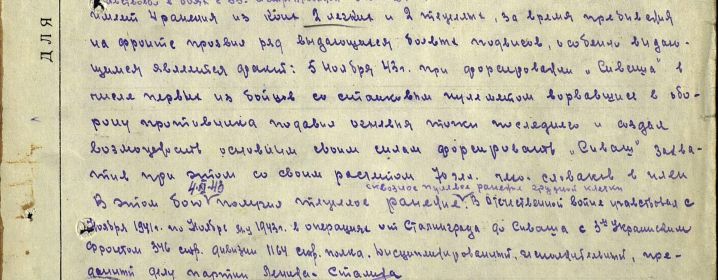 ДЛЯ
имеет 4 ранения из коих 2 легких и 2 тяжелых, за время пребывания
на фронте проявил ряд выдающихся боевых подвигов, особенно выдаю-
щимся является факт: 5 ноября 43г. при форсировании "Сиваша" в
числе первых из бойцов со станковым пулеметом ворвавшись в обо-
рону противника подавил огневые точки последнего и создал
возможность основным своим силам форсировать "Сиваш" захва-
тив при этом со своим расчетом 70 словаков в плен
4.XI-43 сквозное пулевое ранение грудной клетки
В этом бою получил тяжелое ранение. В Отечественной войне участвовал с
Ноября 1941г. по Ноябрь м-ц 1943г. в операциях от Сталинграда до Сиваша с 3им Украинским
фронтом 346 стр. дивизии 1164 стр. полка. Дисциплинированный, исполнительный, пре-
данный делу партии Ленина-Сталина